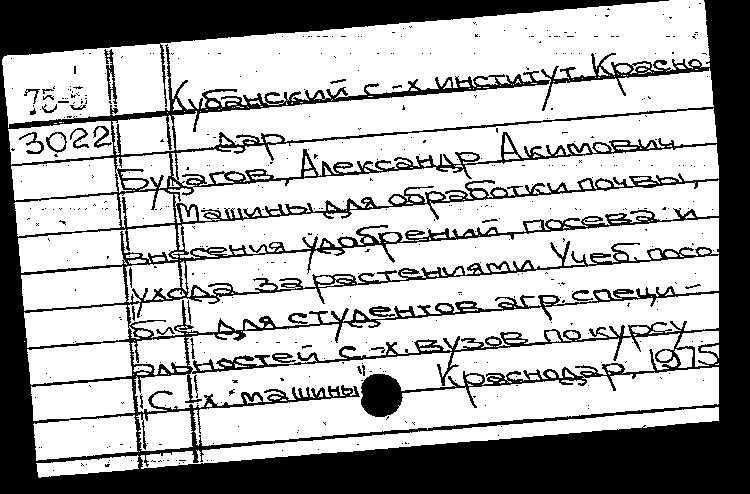 75-5
Кубанский с.-х. институт. Красно-
3022
дар.
Будагов, Александр Акимович
Машины для обработки почвы,
внесения удобрений, посева и
ухода за растениями. Учеб. посо-
бие для студентов агр. специ-
альностей с.-х. вузов по курсу
"С.-х. машины" Краснодар, 1975